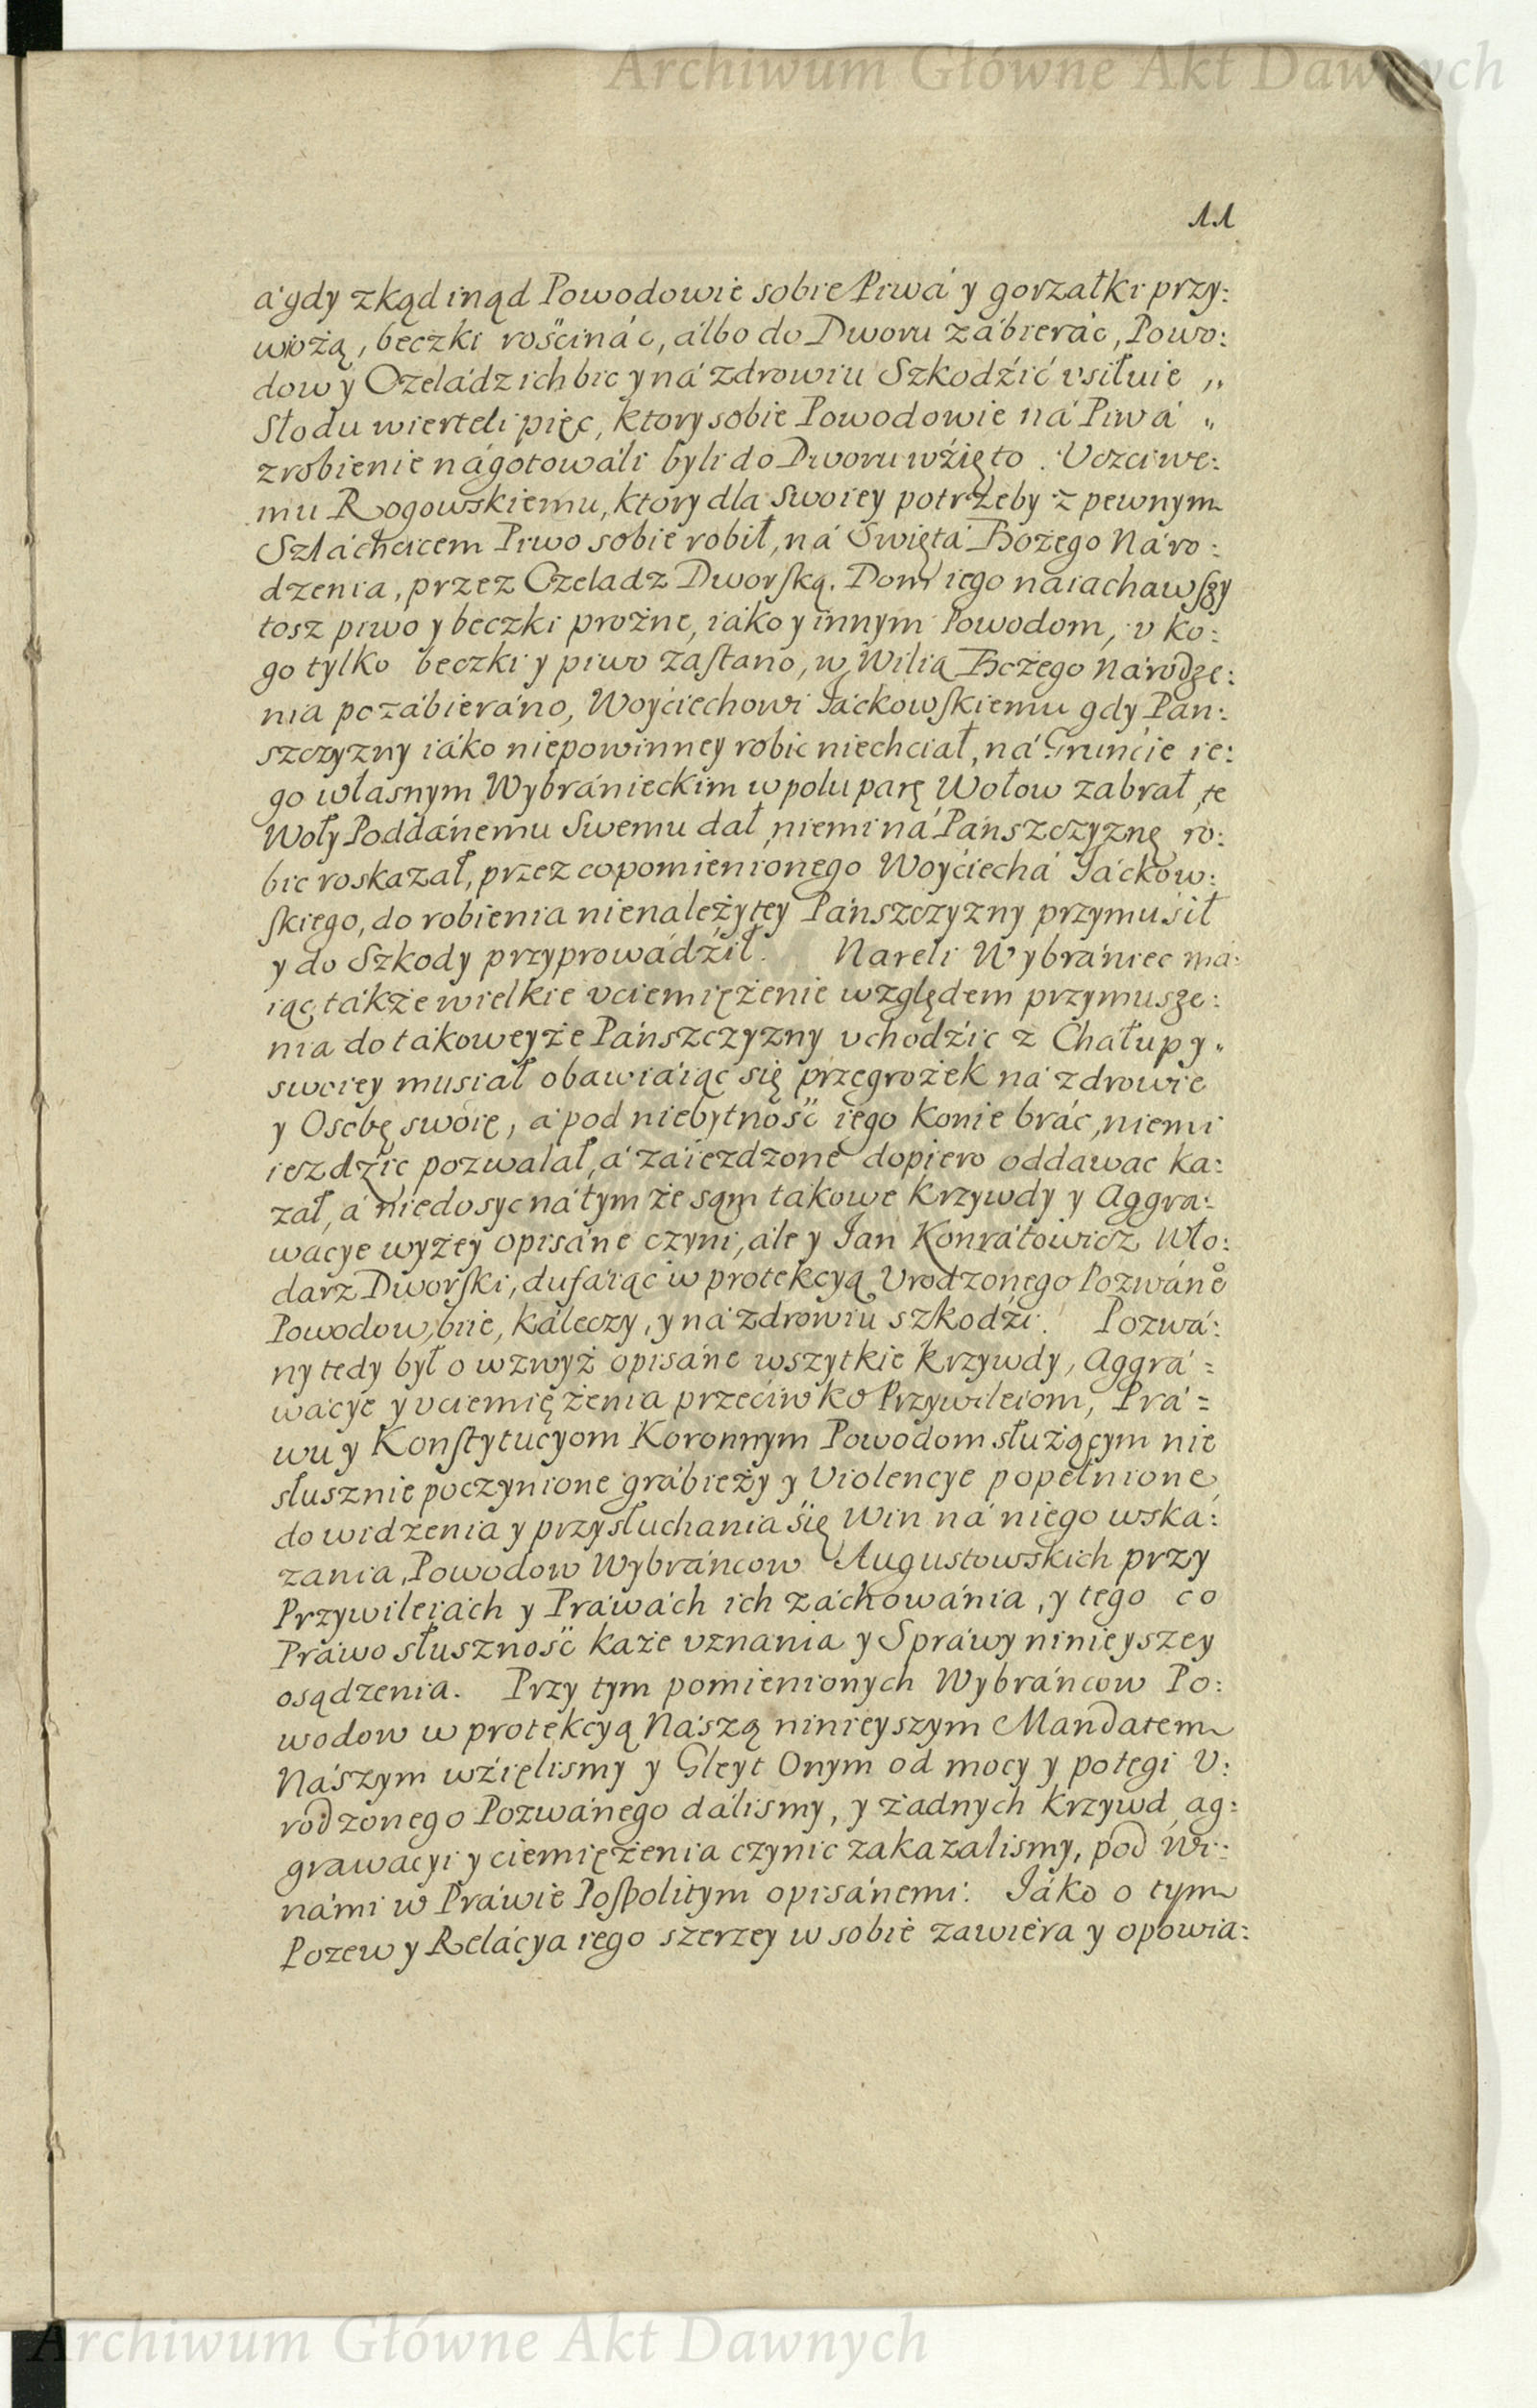 Archiwum Główne Akt Dawnych
11
á gdy zkąd inąd Powodowie sobie Piwá y gorzałki przy:
wiozą, beczki rościnác, álbo do Dworu zábierác, Powo:
dow y Czeladz ich bic y ná zdrowiu Szkodźić vsiłuie „
Słodu wierteli pięc, ktory sobie Powodowie ná Piwá „
zrobienie nágotowáli byli do Dworu wźięto. Uczciwe:
mu Rogowskiemu, ktory dla swoiey potrzeby z pewnym
Szláchcicem Piwo sobie robił, ná Swiętá Bożego Náro:
dzenia, przez Czeladz Dworſką. Dom iego naiachawſzy
tosz piwo y beczki prożne, iáko y innym Powodom, v ko:
go tylko beczki y piwo zaſtano, w Wilią Bożego Národze:
nia pozábieráno, Woyćiechowi Jáckowſkiemu gdy Pán:
szczyzny iáko niepowinney robic niechciał, ná Grunćie ie:
go własnym Wybránieckim w polu parę Wołow zabrał, te
Woły Poddánemu Swemu dał, niemi ná Pánszczyznę ro:
bic roskazał, przez co pomienionego Woyćiechá Jáckow:
ſkiego, do robienia nienależytey Pánszczyzny przymuśił
y do Szkody przyprowádźił. Nareli Wybrániec má:
iąc tákże wielkie vciemiężenie względem przymusze:
nia do tákoweyże Pánszczyzny vchodźic z Chałupy „
swoiey musiał obawiáiąc się przegrożek ná zdrowie
y Osobę swoię, á pod niebytność iego konie brác, niemi
iezdźic pozwalał, á záiezdzone dopiero oddawac ka:
zał, á niedosyc ná tym że sąm tákowe Krzywdy y Aggra:
wácye wyżey opisáne czyni, ále y Jan Konrátowicz Wło:
darz Dworſki, dufáiąc w protekcyą Urodzonego Pozwáneo
Powodow, biie, káleczy, y ná zdrowiu szkodźi. Pozwá:
ny tedy był o wzwyż opisáne wszytkie Krzywdy, Aggrá=
wácye y vciemiężenia przećiwko Przywileiom, Prá=
wu y Konſtytucyom Koronnym Powodom służącym nie
słusznie poczynione grábieży y Violencye popełnione,
do widzenia y przysłuchania śię Win ná niego wska:
zania, Powodow Wybráncow Augustowskich przy
Przywileiách y Práwách ich záchowánia, y tego co
Práwo słuszność każe vznania y Spráwy ninieyszey
osądzenia. Przy tym pomienionych Wybráncow Po:
wodow w protekcyą Nászą ninieyszym Mandatem
Nászym wźięlismy y Gleyt Onym od mocy y potęgi U:
rodzonego Pozwánego dálismy, y żadnych Krzywd, ag:
grawácyi y ciemiężenia czynic zakazalismy, pod Wi:
námi w Práwie Poſpolitym opisánemi. Jáko o tym
Pozew y Relácya iego szerzey w sobie zawiera y opowia:
Archiwum Główne Akt Dawnych